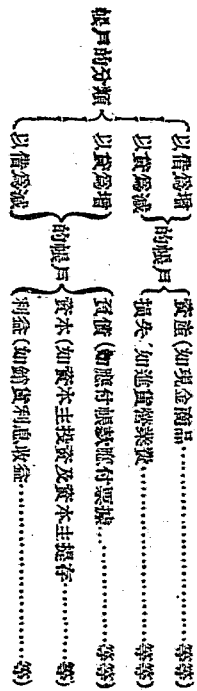 帳戶的分類
以借爲增
以貸爲減
的帳戶
資產(如現金商品………………等等)
損失(如進貨營業費………………等等)
以貸爲增
以借爲減
的帳戶
負債(如應付帳款應付票據…………等等)
資本(如資本主投資及資本主提存………等)
利益(如銷貨利息收益………………等)